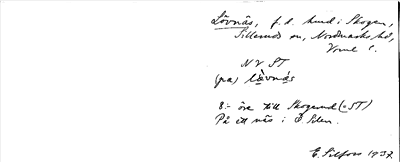 Lövnäs, f.d. hund i Skogen,
Sillerud sn, Nordmarks hd,
Värml.
NV ST
(på) lövnäs
8:- öre till Skogerud (=ST)
På ett näs i Ö Silen.
E. Silfors 1937